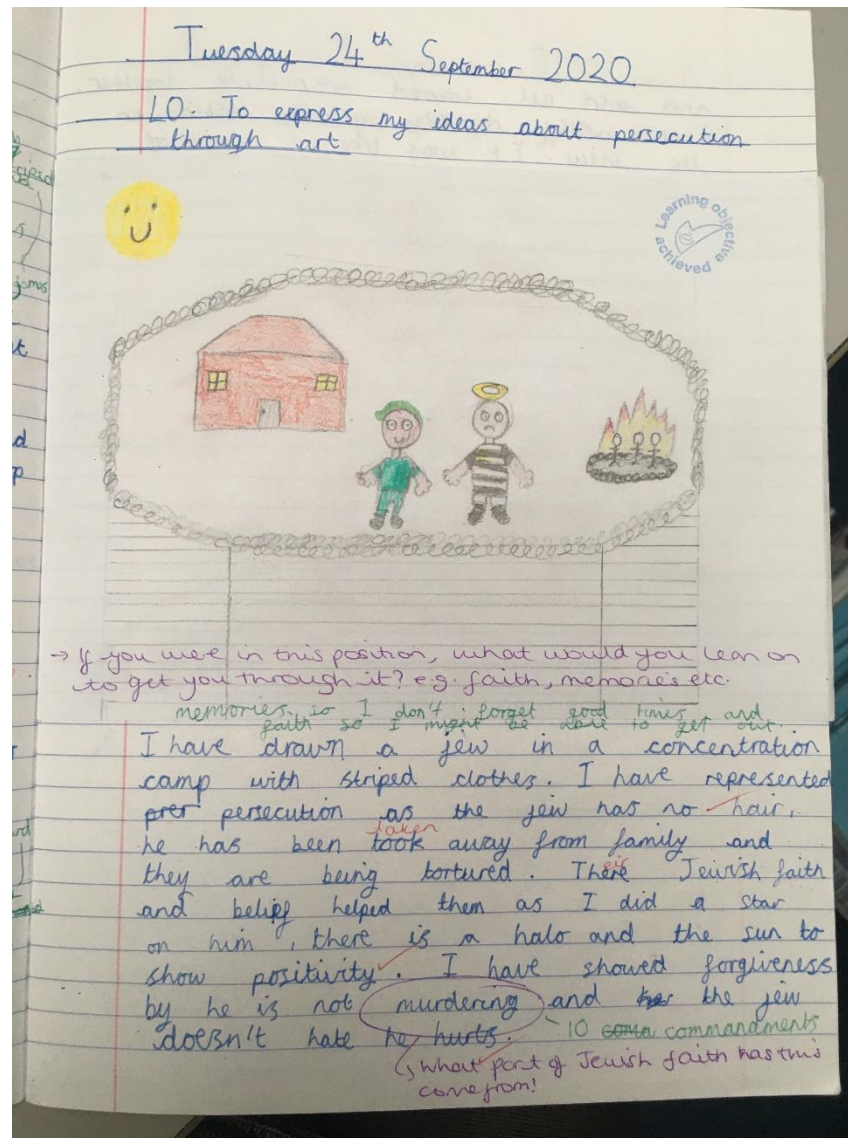 Tuesday 24th September 2020
LO. To express my ideas about persecution
through art
Learning objective
achieved
→ If you were in this position, what would you lean on
to get you through it? e.g. faith, memories etc.
memories so I don't forget good times and
faith so I might be able to get out.
I have drawn a jew in a concentration
camp with striped clothes. I have represented
persecution as the jew has no hair,
he has been took taken away from family and
they are being tortured. There eir Jewish faith
and belief helped them as I did a star
on him, there is a halo and the sun to
show positivity. I have showed forgiveness
by he is not murdering and the jew
doesn't hate he hurts.
10 commandments
What part of Jewish faith has this
come from!